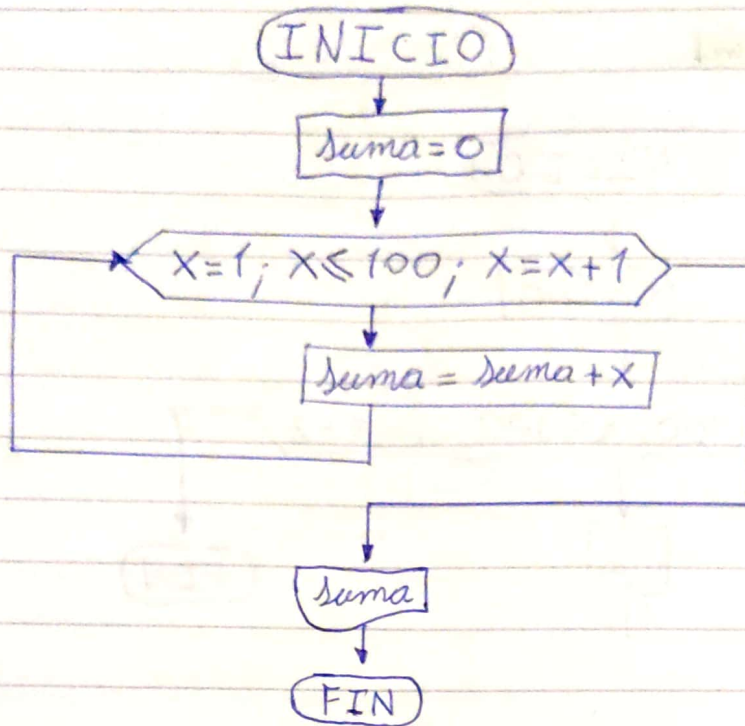 INICIO
suma=0
X=1; X≤100; X=X+1
suma = suma + X
suma
FIN